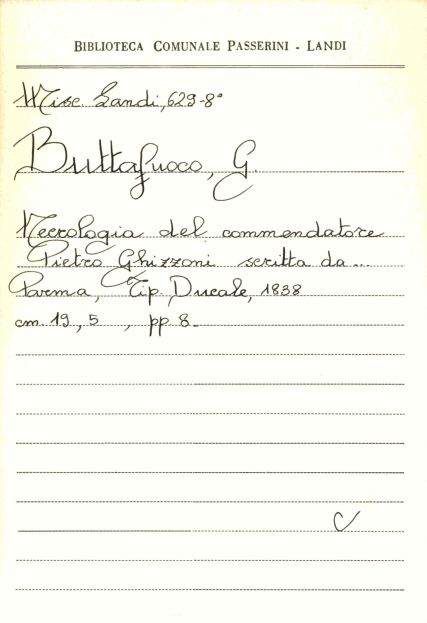 BIBLIOTECA COMUNALE PASSERINI - LANDI
Misc. Landi, 629-8°
Buttafuoco, G.
Necrologia del commendatore
Pietro Ghizzoni scritta da...
Parma, Tip. Ducale, 1838
cm. 19,5, pp 8.